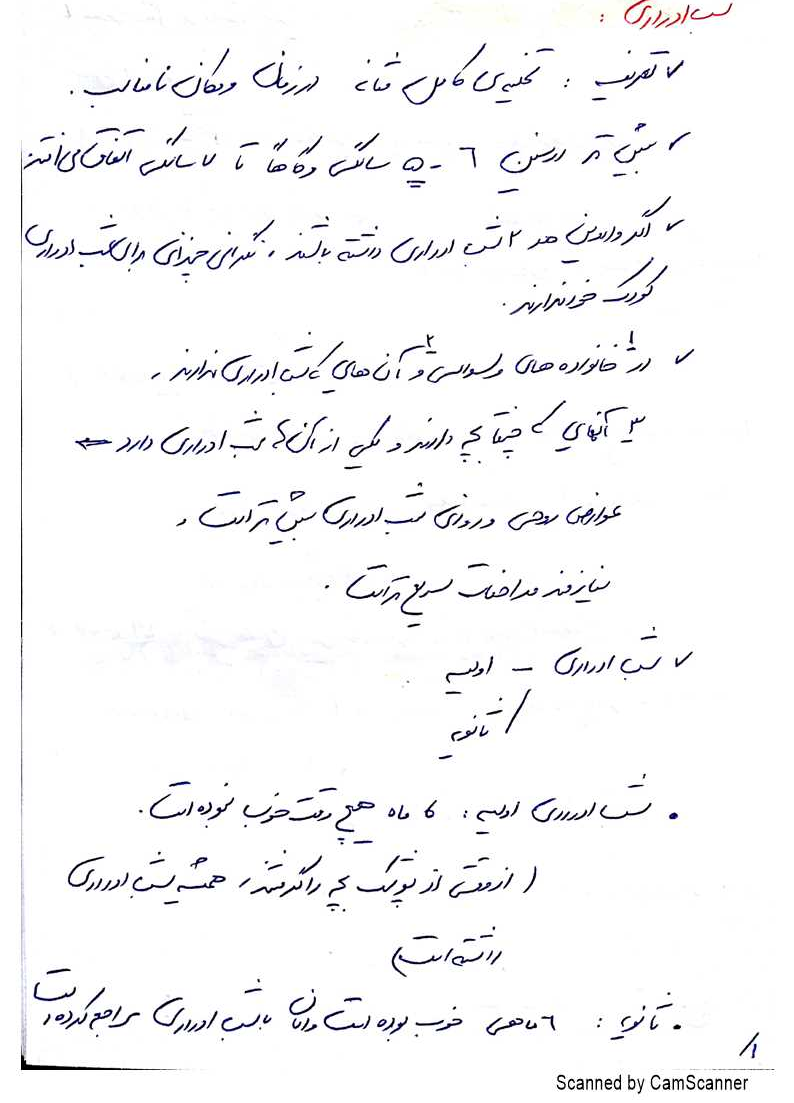 شب ادراری :
✓ تعریف : تخلیه‌ی کامل مثانه در زمان و مکان نامناسب .
✓ بیش تر در سنین ۶ - ۵ سالگی و گاهاً تا ۷ سالگی اتفاق می افتد
✓ اگر والدین هر ۲ شب ادراری داشته باشند ، نگرانی چندانی برای شب ادراری
کودک خود ندارند .
✓ در ۱ خانواده های وسواسی و ۲ آن هایی که شب ادراری ندارند ،
۳ آنهایی که چندتا بچه دارند و یکی از آن ها شب ادراری دارد ⇐
عوارض روحی و روانی شب ادراری بیش تر است و
نیازمند مداخلات سریع تر است .
✓ شب ادراری - اولیه
/ ثانویه
• شب ادراری اولیه : ۶ ماه هیچ وقت خوب نبوده است .
( از وقتی از پوشک بچه را گرفتند ، همیشه شب ادراری
داشته است )
• ثانویه : ۶ ماهی خوب بوده است و الان با شب ادراری مراجعه کرده است
۱/
Scanned by CamScanner